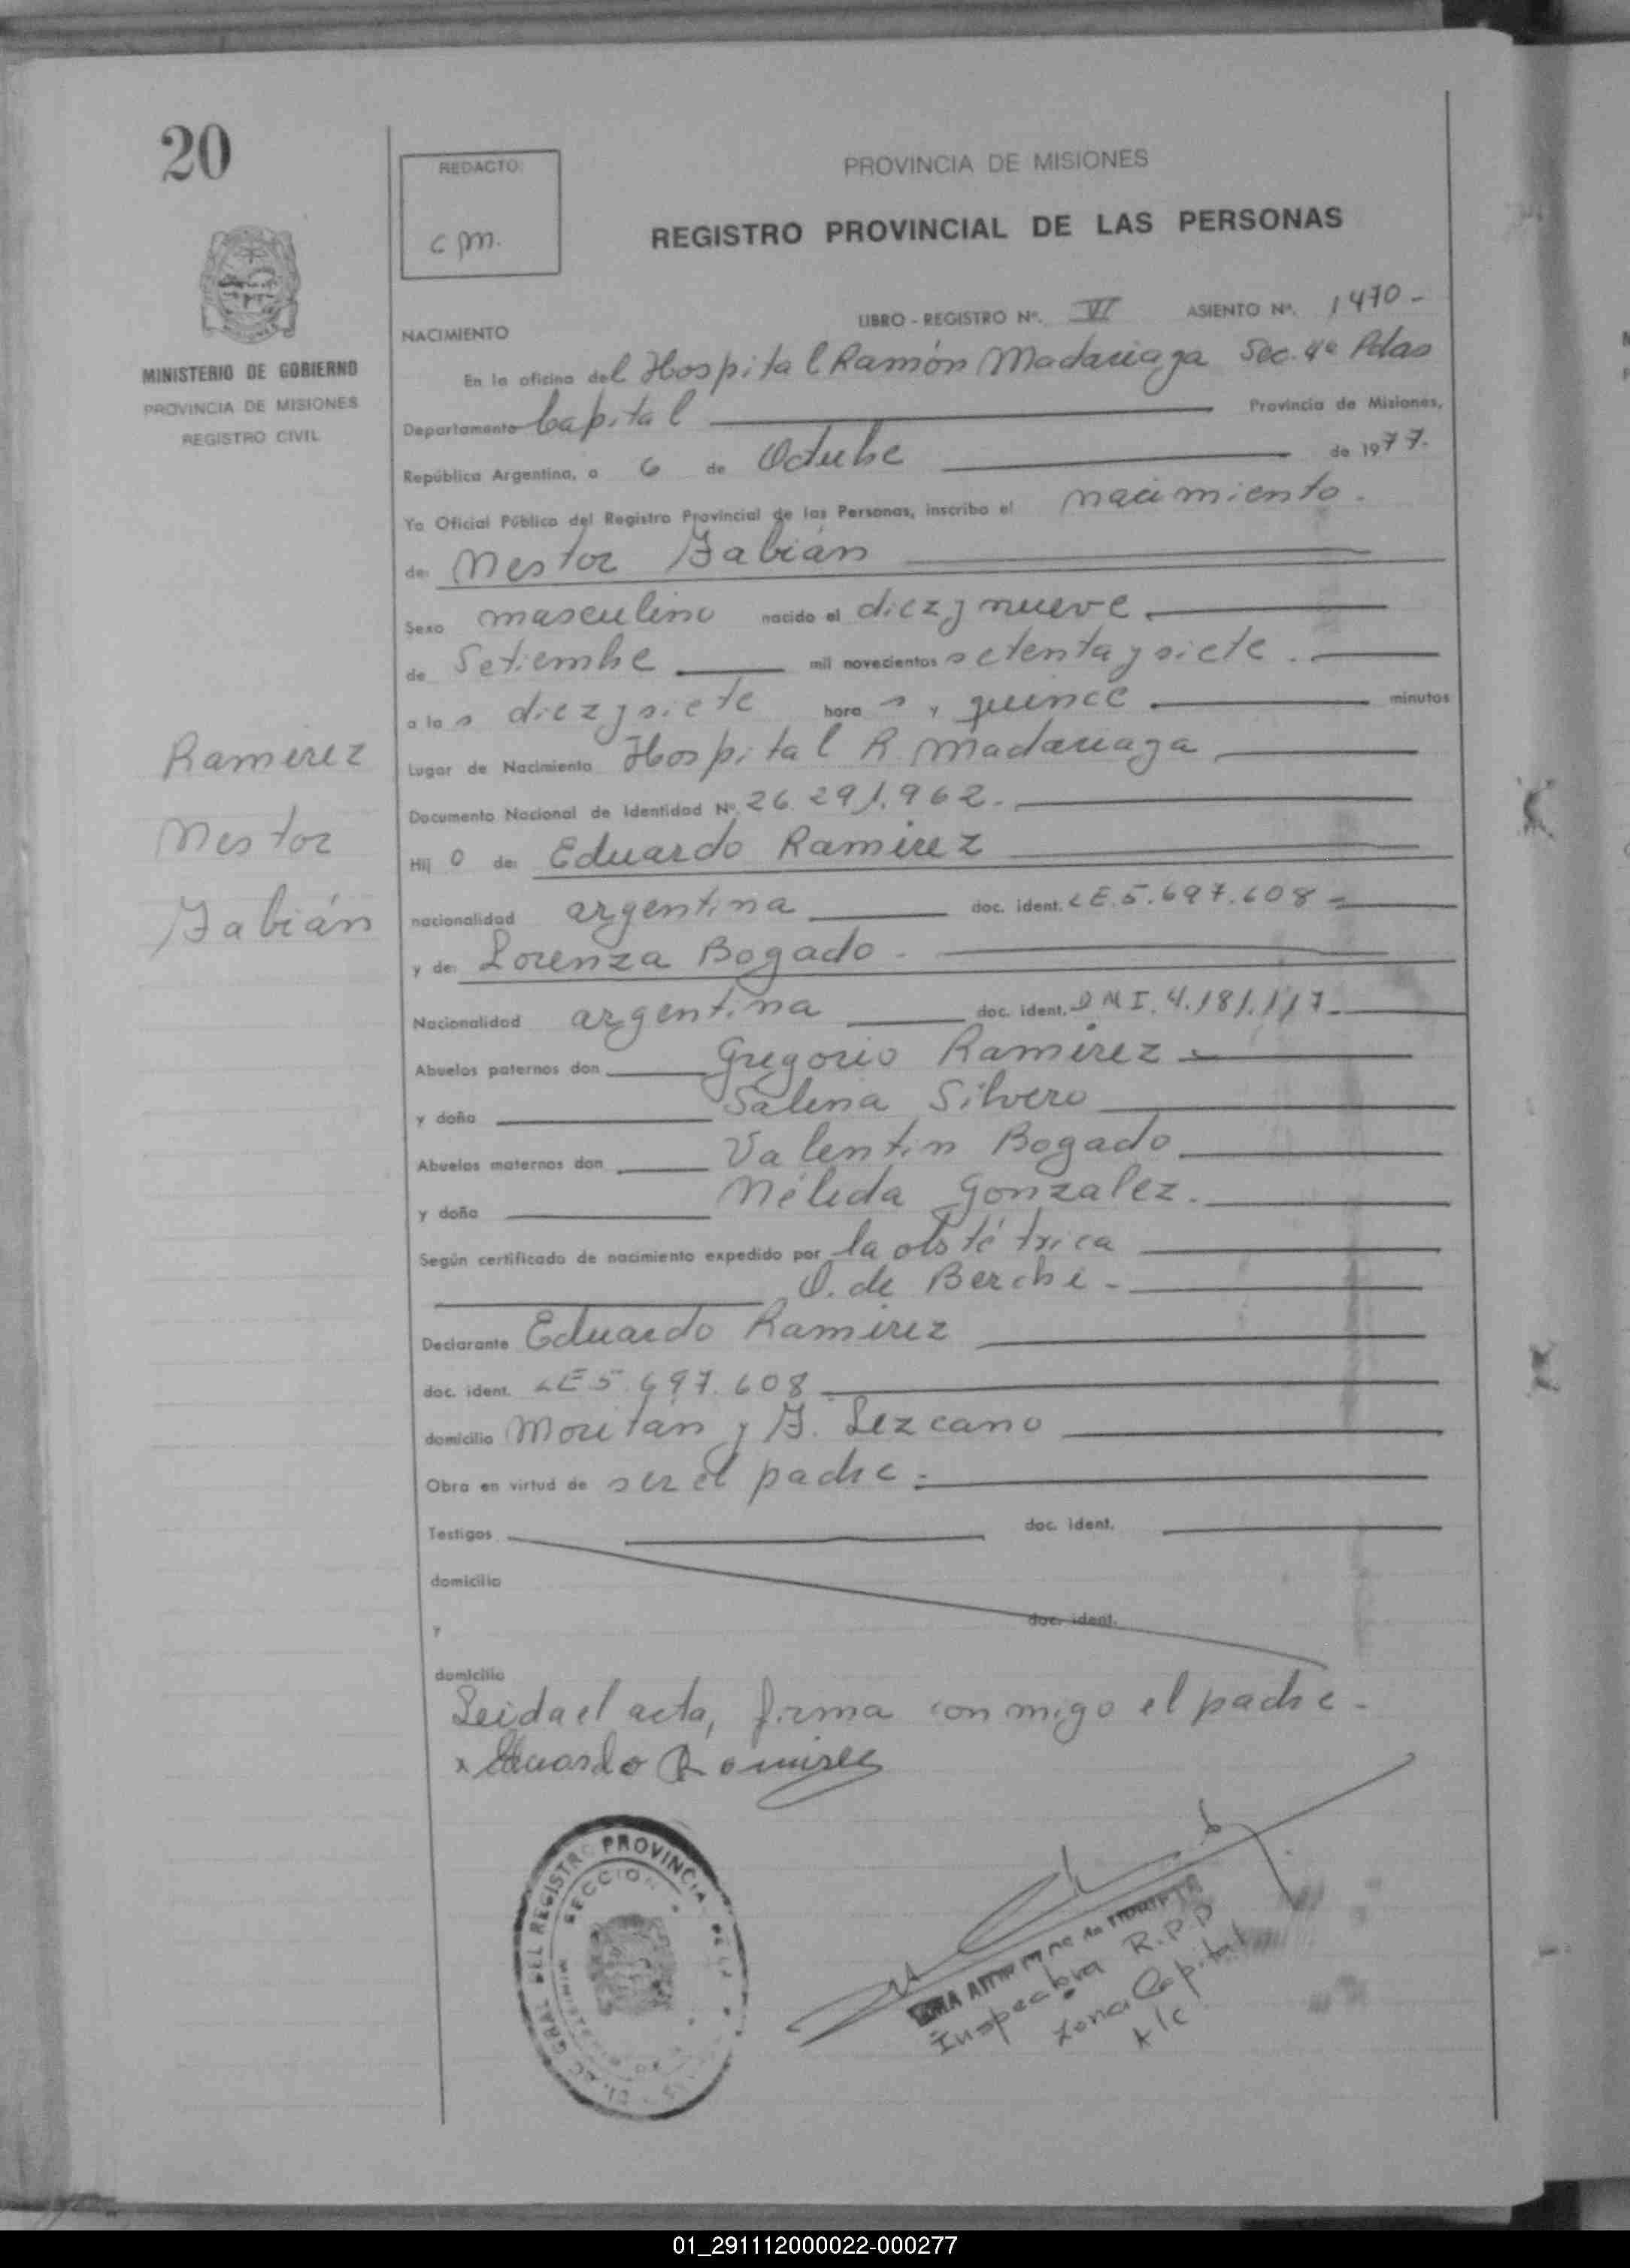 20
REDACTO:
c m.
PROVINCIA DE MISIONES
REGISTRO PROVINCIAL DE LAS PERSONAS
MINISTERIO DE GOBIERNO
PROVINCIA DE MISIONES
REGISTRO CIVIL
NACIMIENTO
LIBRO - REGISTRO Nº. VI ASIENTO Nº. 1470 -
En la oficina del Hospital Ramón Madariaga Sec. 4ª Pdas
Departamento Capital Provincia de Misiones,
República Argentina, a 6 de Octubre de 1977.
Yo Oficial Público del Registro Provincial de las Personas, inscribo el nacimiento.
de: Nestor Fabián
Sexo masculino nacido el diez y nueve
de Setiembre mil novecientos setenta y siete.
a las diez y siete horas y quince minutos
Lugar de Nacimiento Hospital R. Madariaga
Documento Nacional de Identidad Nº. 26.291.962.
Hijo de: Eduardo Ramirez
nacionalidad argentina doc. ident. LE.5.697.608
y de: Lorenza Bogado -
Nacionalidad argentina doc. ident. DNI. 4.181.117
Abuelos paternos don Gregorio Ramirez
y doña Salina Silvero
Abuelos maternos don Valentin Bogado
y doña Nélida Gonzalez.
Según certificado de nacimiento expedido por la obstétrica
O. de Berchi -
Declarante Eduardo Ramirez
doc. ident. LE 5.697.608
domicilio Moritán y F. Lezcano
Obra en virtud de ser el padre.
Testigos doc. ident.
domicilio
y doc. ident.
domicilio
Leida el acta, firma conmigo el padre -
x Eduardo Ramirez
Ramirez
Nestor
Fabián
GRAL DEL REGISTRO PROVINCIAL DE LA
SECCION
Inspectora R.P.P
Zona Capital
A/C
01_291112000022-000277